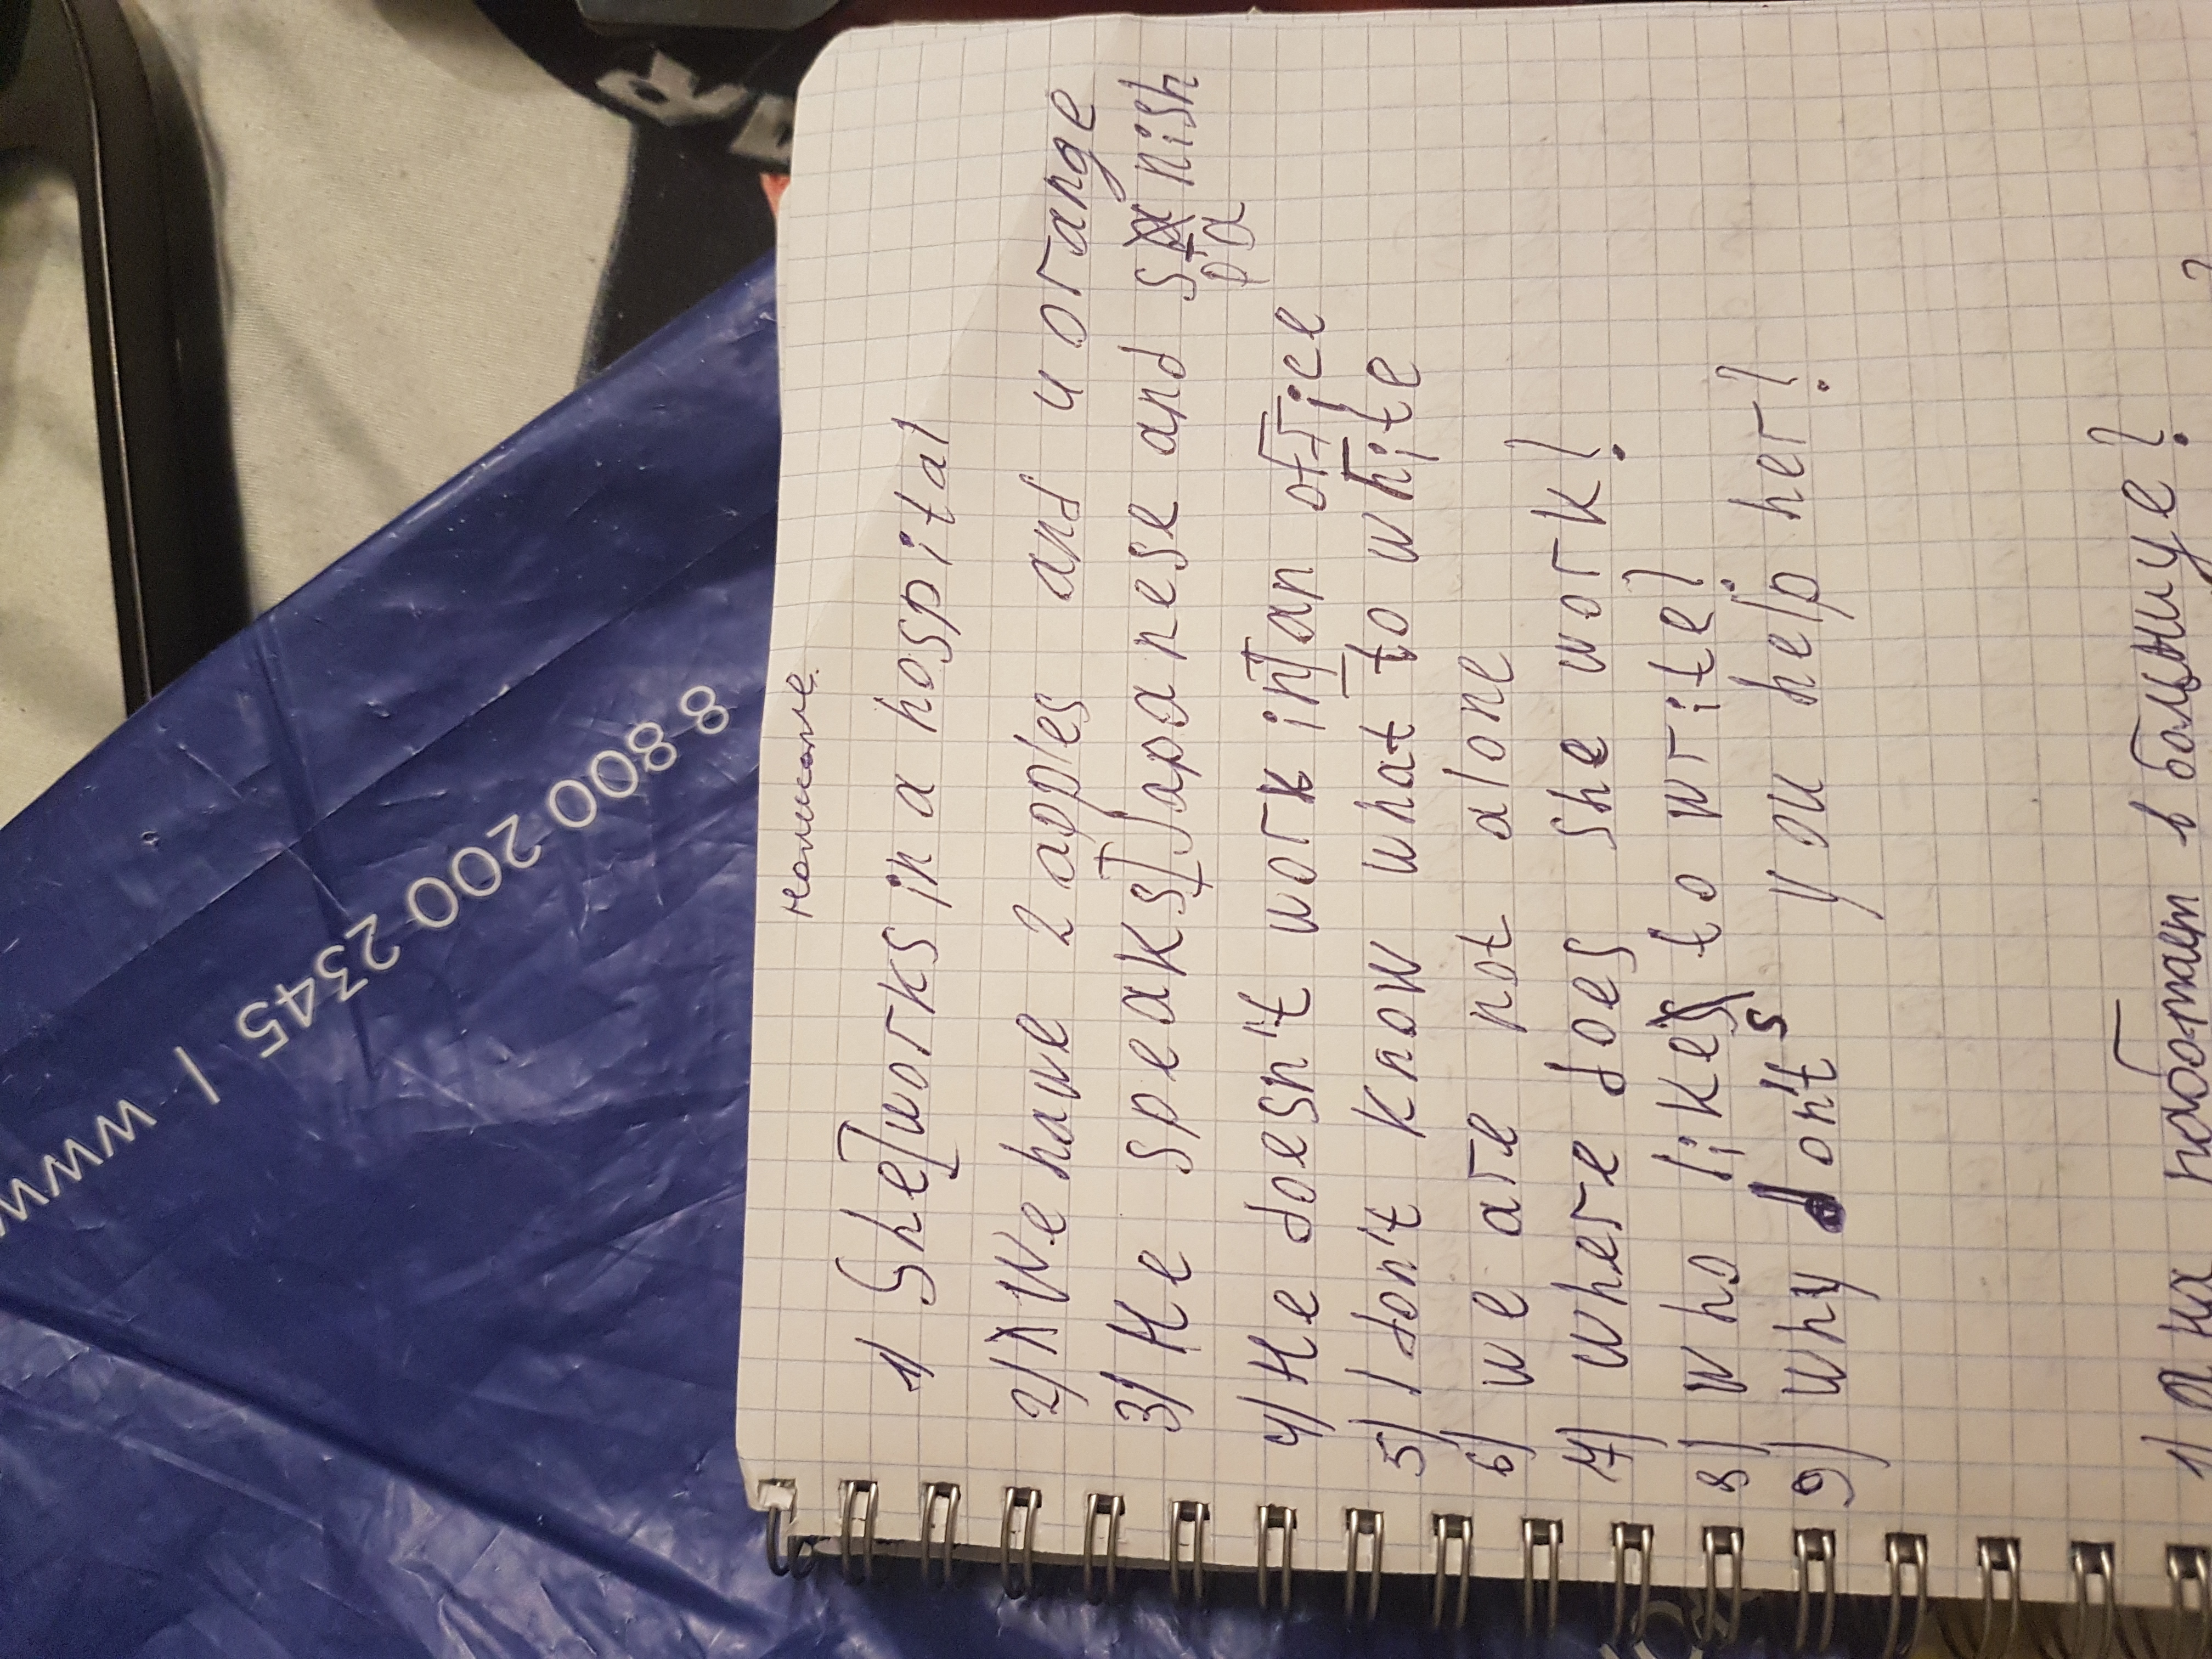 8 800 200 2345 | www
1) She works in a hospital
2) We have 2 apples and 4 orange
3) He speaks Japanese and Spanish
4) He doesn't work in an office
5) I don't know what to white
6) we are not alone
7) where does she work?
8) who likes to write?
9) why don't you help her?
1) Она работает в болнице?